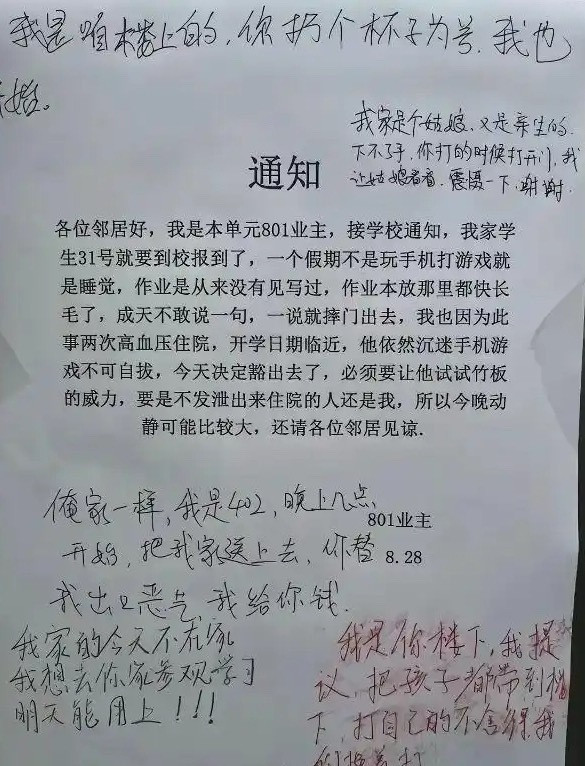 我是咱楼上的，你扔个杯子为号．我也
开始。
我家是个姑娘，又是亲生的．
下不了手，你打的时候打开门，我
让姑娘看看．震慑一下．谢谢．
通知
各位邻居好，我是本单元801业主，接学校通知，我家学
生31号就要到校报到了，一个假期不是玩手机打游戏就
是睡觉，作业是从来没有见写过，作业本放那里都快长
毛了，成天不敢说一句，一说就摔门出去，我也因为此
事两次高血压住院，开学日期临近，他依然沉迷手机游
戏不可自拔，今天决定豁出去了，必须要让他试试竹板
的威力，要是不发泄出来住院的人还是我，所以今晚动
静可能比较大，还请各位邻居见谅.
801业主
8.28
俺家一样，我是402，晚上几点
开始，把我家送上去，你替
我出口恶气，我给你钱．
我家的今天不在家
我想去你家参观学习
明天能用上！！！
我是你楼下，我提
议，把孩子都带到楼
下，打自己的不舍得我
们换着打